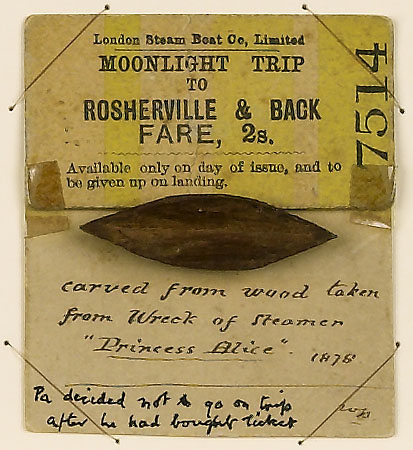 London Steam Boat Co, Limited
MOONLIGHT TRIP
TO
ROSHERVILLE & BACK
FARE, 2s.
Available only on day of issue, and to
be given up on landing.
7514
carved from wood taken
from Wreck of Steamer
"Princess Alice". 1878
Pa decided not to go on trip
after he had bought ticket